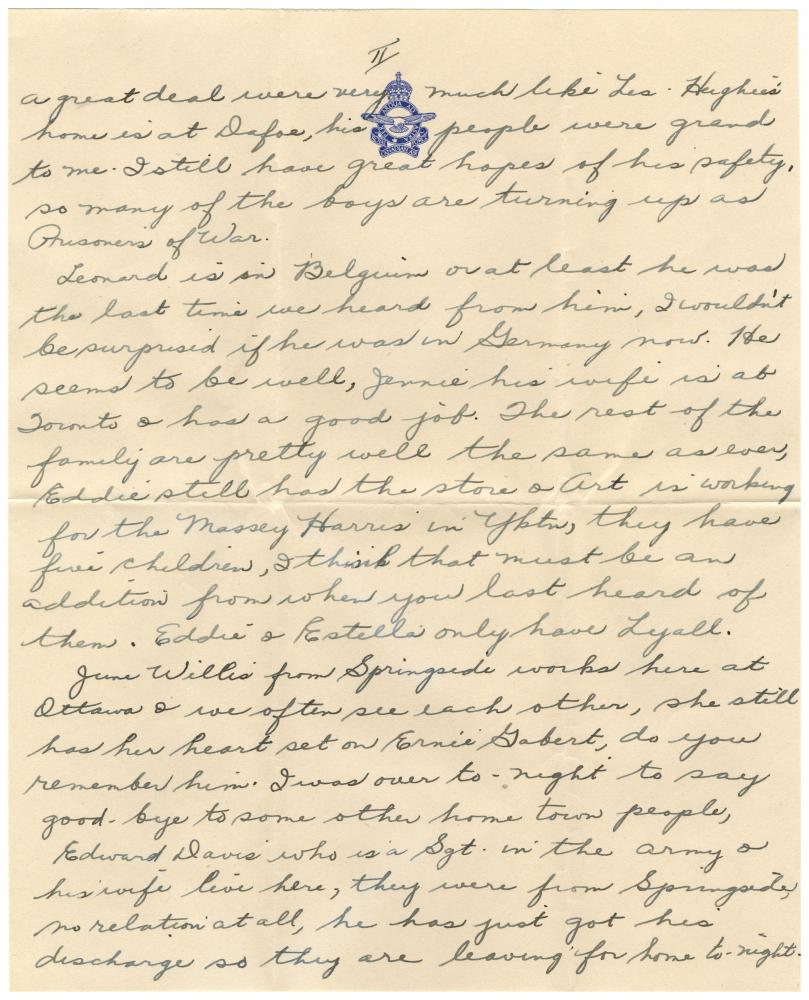 II
a great deal were very much like Les. Hughie's
home is at Dafoe, his people were grand
to me. I still have great hopes of his safety,
so many of the boys are turning up as
Prisoners of War.
Leonard is in Belguim or at least he was
the last time we heard from him, I wouldn't
be surprised if he was in Germany now. He
seems to be well, Jennie his wife is at
Toronto & has a good job. The rest of the
family are pretty well the same as ever,
Eddie still has the store & Art is working
for the Massey Harris in Yktn, they have
five children, I think that must be an
addition from when you last heard of
them. Eddie & Estella only have Lyall.
June Willis from Springside works here at
Ottawa & we often see each other, she still
has her heart set on Ernie Gabert, do you
remember him. I was over to-night to say
good-bye to some other home town people,
Edward Davis who is a Sgt. in the army &
his wife live here, they were from Springside,
no relation at all, he has just got his
discharge so they are leaving for home to-night.